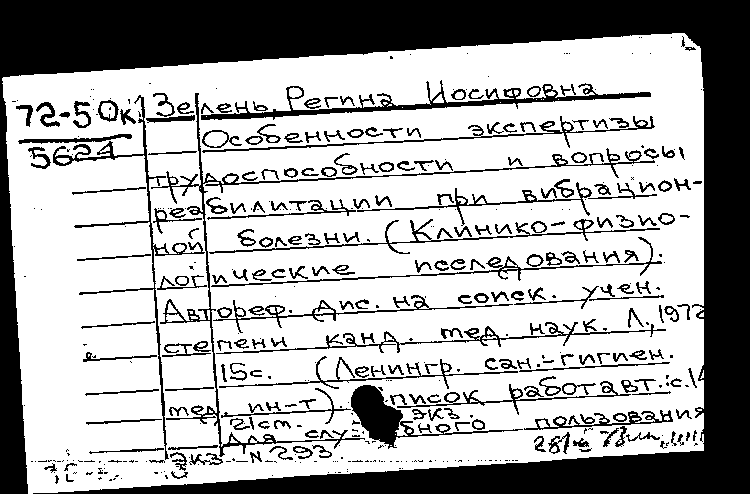 72-5 Ок. Зелень, Регина Иосифовна
5624
Особенности экспертизы
трудоспособности и вопросы
реабилитации при вибрацион-
ной болезни. (Клинико-физио-
логические исследования).
Автореф. дис. на соиск. учен.
степени канд. мед. наук. Л., 1972
15с. (Ленингр. сан.-гигиен.
мед. ин-т) список работ авт.: с. 14
21 ст. экз.
для служебного пользования
экз. N 293.